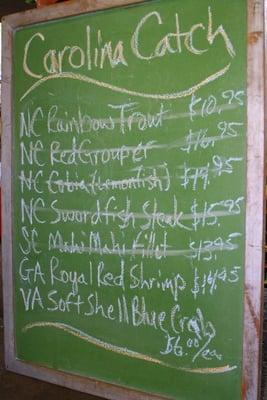 Carolina Catch
NC Rainbow Trout $10.95
NC Red Grouper $16.95
NC Cobia (Lemonfish) $14.95
NC Swordfish Steak $15.95
SC Mahi Mahi Fillet $13.95
GA Royal Red Shrimp $14.95
VA Soft Shell Blue Crab
$6.00/ea